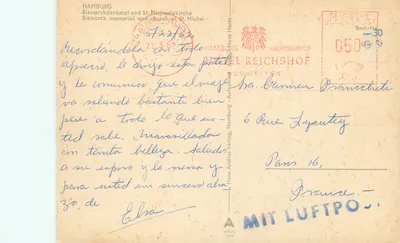 HAMBURG
Bismarckdenkmal und St. Michaeliskirche
Bismarck memorial and church of St. Michel
5/22/62
Recordándola con todo
aprecio, le dirijo esta postal
y le comunico que el viaje
va saliendo bastante bien
pese a todo lo que us-
ted sabe. Maravillada
con tanta belleza. Saludos
a su esposo y la nena y
para usted un sincero abra-
zo, de
Elsa
HAMBURG
HOTEL REICHSHOF
050
Sra. Carmen
6 Rue Lyautey
Paris 16,
France
MIT LUFTPOST